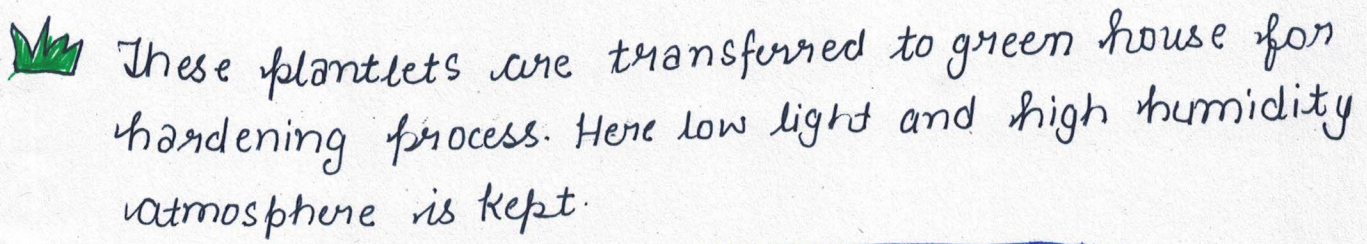 These plantlets are transferred to green house for
hardening process. Here low light and high humidity
atmosphere is kept.